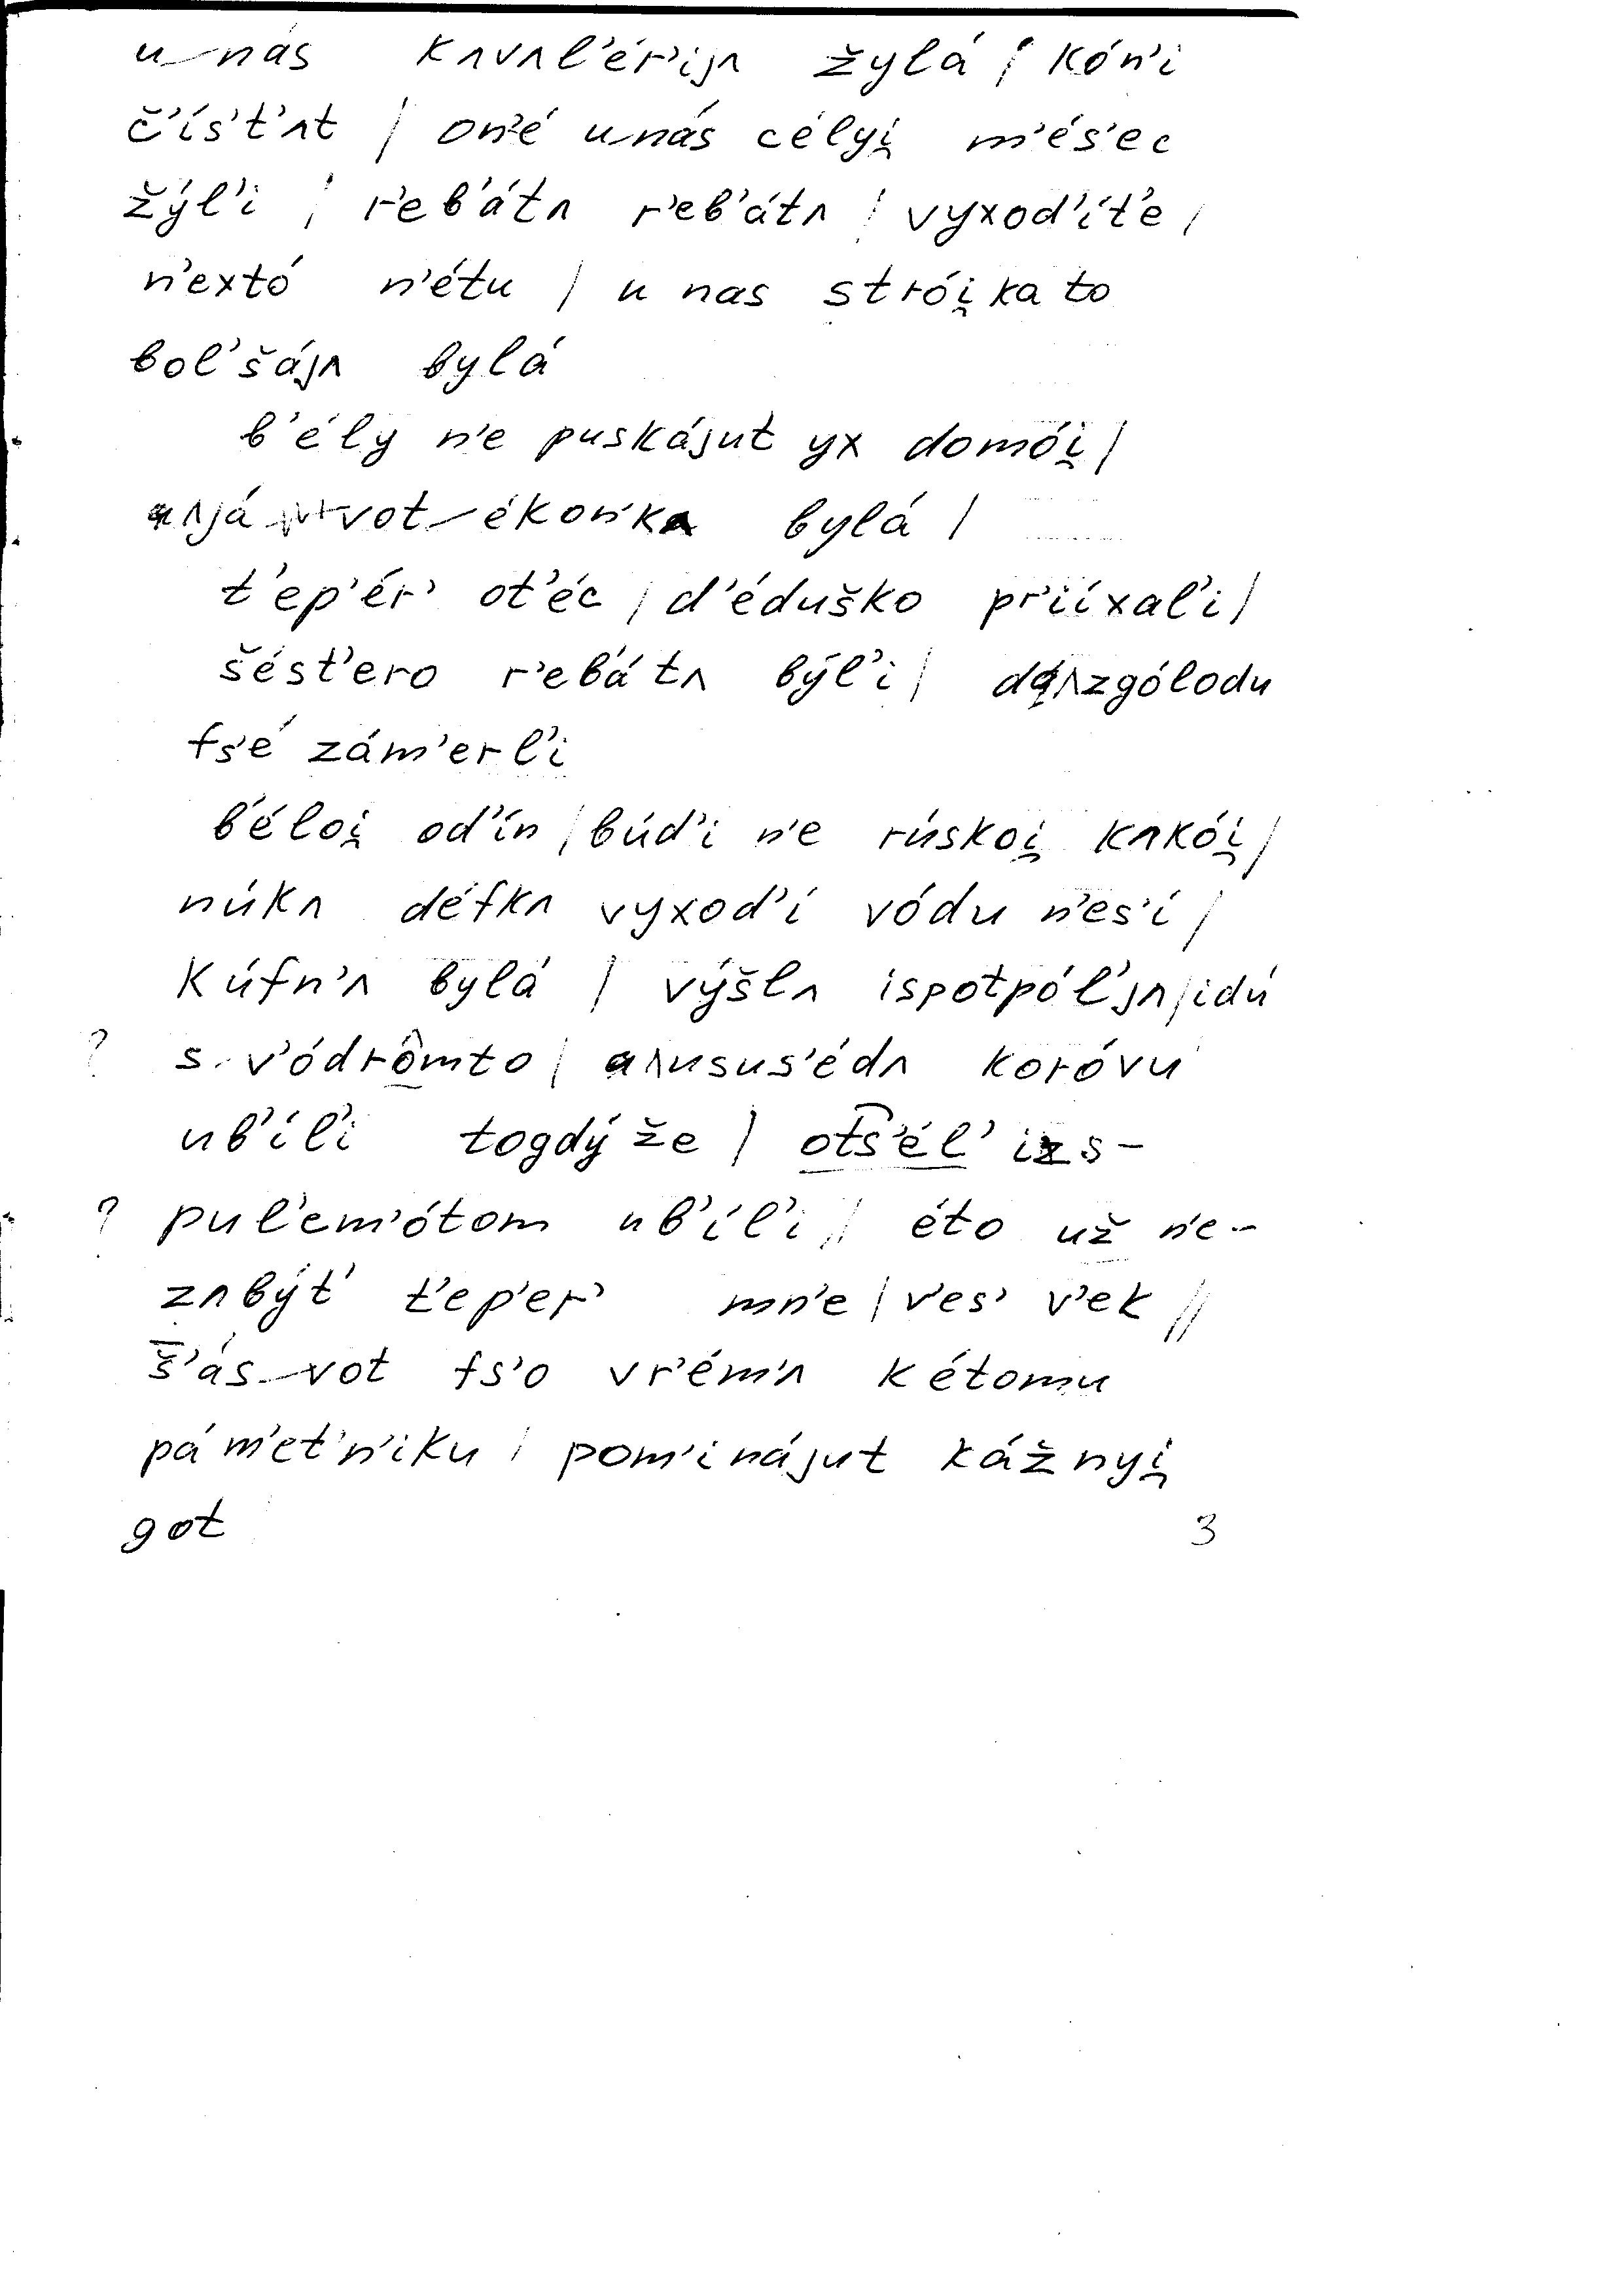 u‿nás kʌvʌl'ér'ijʌ žylá / kón'i
č'ís't'ʌt / on'é u‿nás célyi̯ m'és'ec
žýl'i / r'eb'átʌ r'eb'átʌ / vyxod'ít'e /
n'extó n'étu / u nas strói̯ka to
bol'šájʌ bylá
b'ély n'e puskájut yx domói̯ /
ʌjá vot‿ékon'ka bylá /
t'ep'ér' ot'éc / d'éduško pr'iíxal'i /
šést'ero r'eb'átʌ býl'i / dʌzgólodu
fs'é zám'erl'i
b'éloi̯ od'ín / búd'i n'e rúskoi̯ kʌkói̯ /
núkʌ défkʌ vyxod'í vódu n'es'í /
kúfn'ʌ bylá / výšlʌ ispotpól'jʌ / idú
? s v'ódrômto / ʌusus'édʌ koróvu
ub'íl'i togdýže / ots'él' izs-
? pul'em'ótom ub'íl'i // éto už n'e-
zʌbýt' t'ep'er' mn'e / v'es' v'ek //
š̅'ás‿vot fs'o vr'ém'ʌ k étomu
pám'et'n'iku / pom'inájut kážnyi̯
got 3